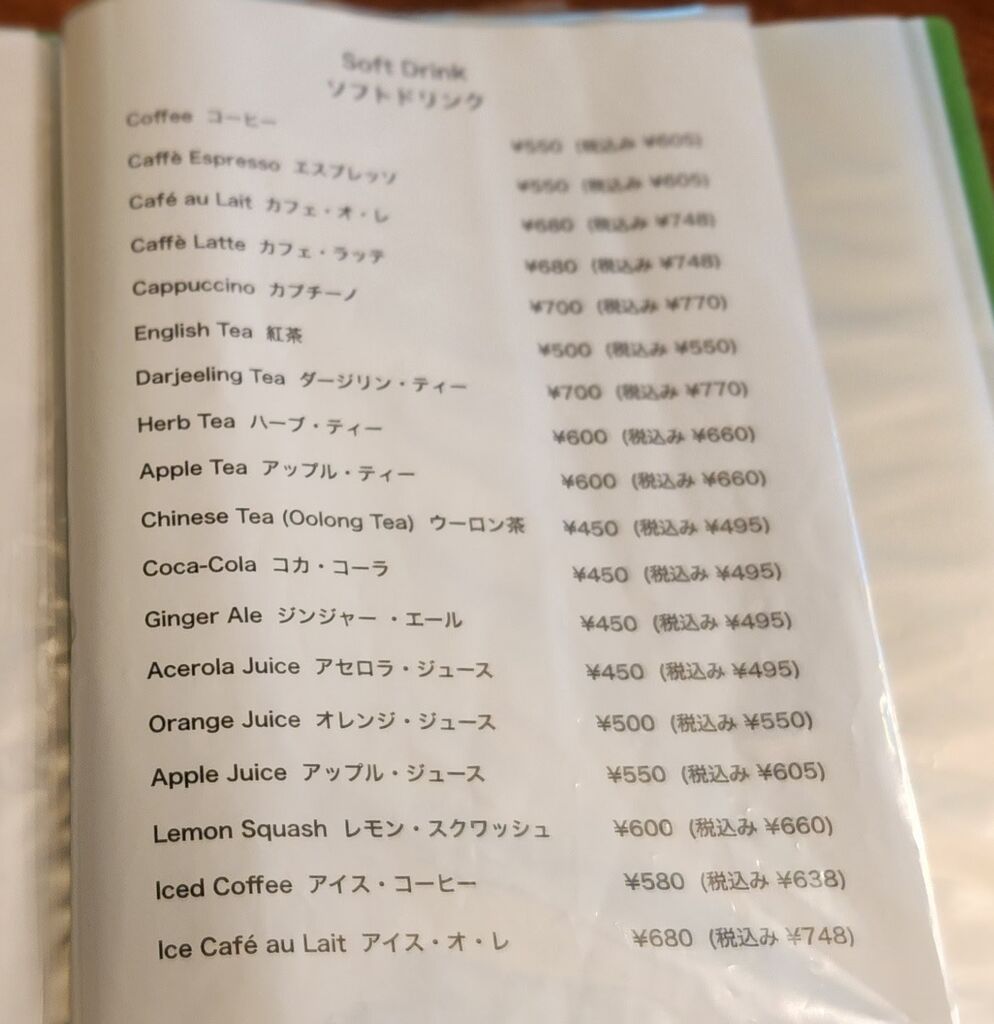 Soft Drink
ソフトドリンク
Coffee コーヒー ¥550 (税込み ¥605)
Caffè Espresso エスプレッソ ¥550 (税込み ¥605)
Café au Lait カフェ・オ・レ ¥680 (税込み ¥748)
Caffè Latte カフェ・ラッテ ¥680 (税込み ¥748)
Cappuccino カプチーノ ¥700 (税込み ¥770)
English Tea 紅茶 ¥500 (税込み ¥550)
Darjeeling Tea ダージリン・ティー ¥700 (税込み ¥770)
Herb Tea ハーブ・ティー ¥600 (税込み ¥660)
Apple Tea アップル・ティー ¥600 (税込み ¥660)
Chinese Tea (Oolong Tea) ウーロン茶 ¥450 (税込み ¥495)
Coca-Cola コカ・コーラ ¥450 (税込み ¥495)
Ginger Ale ジンジャー・エール ¥450 (税込み ¥495)
Acerola Juice アセロラ・ジュース ¥450 (税込み ¥495)
Orange Juice オレンジ・ジュース ¥500 (税込み ¥550)
Apple Juice アップル・ジュース ¥550 (税込み ¥605)
Lemon Squash レモン・スクワッシュ ¥600 (税込み ¥660)
Iced Coffee アイス・コーヒー ¥580 (税込み ¥638)
Ice Café au Lait アイス・オ・レ ¥680 (税込み ¥748)